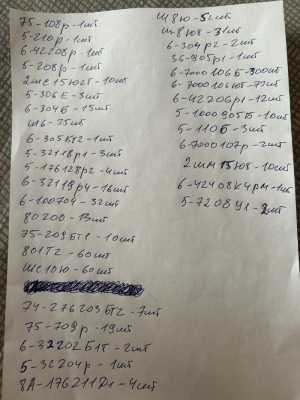 75-108р-1шт
5-210р-1шт
6-42208р-1шт
5-208р-1шт
2шс15ю2т-10шт
5-306Е-3шт
6-304Б-15шт
ш6-75шт
6-305К12-1шт
5-32118р1-3шт
5-176128р2-4шт
6-32119р4-16шт
6-100704-32шт
80200-13шт
75-209Б11-10шт
801Т2-60шт
шс10ю-60шт
74-276209Б12-7шт
75-709р-19шт
6-32202Б1Т-2шт
5-32204р-1шт
8А-176211Д1-4шт
ш8ю-52шт
ш8ют-31шт
6-304р2-2шт
36-905р1-1шт
6-7000106Б-300шт
6-7000106ют-77шт
6-42206р1-12шт
5-1000905Б-10шт
5-110Б-3шт
6-7000107р-2шт
2шм15ют-10шт
6-42408К4рМ-1шт
5-7208У1-2шт